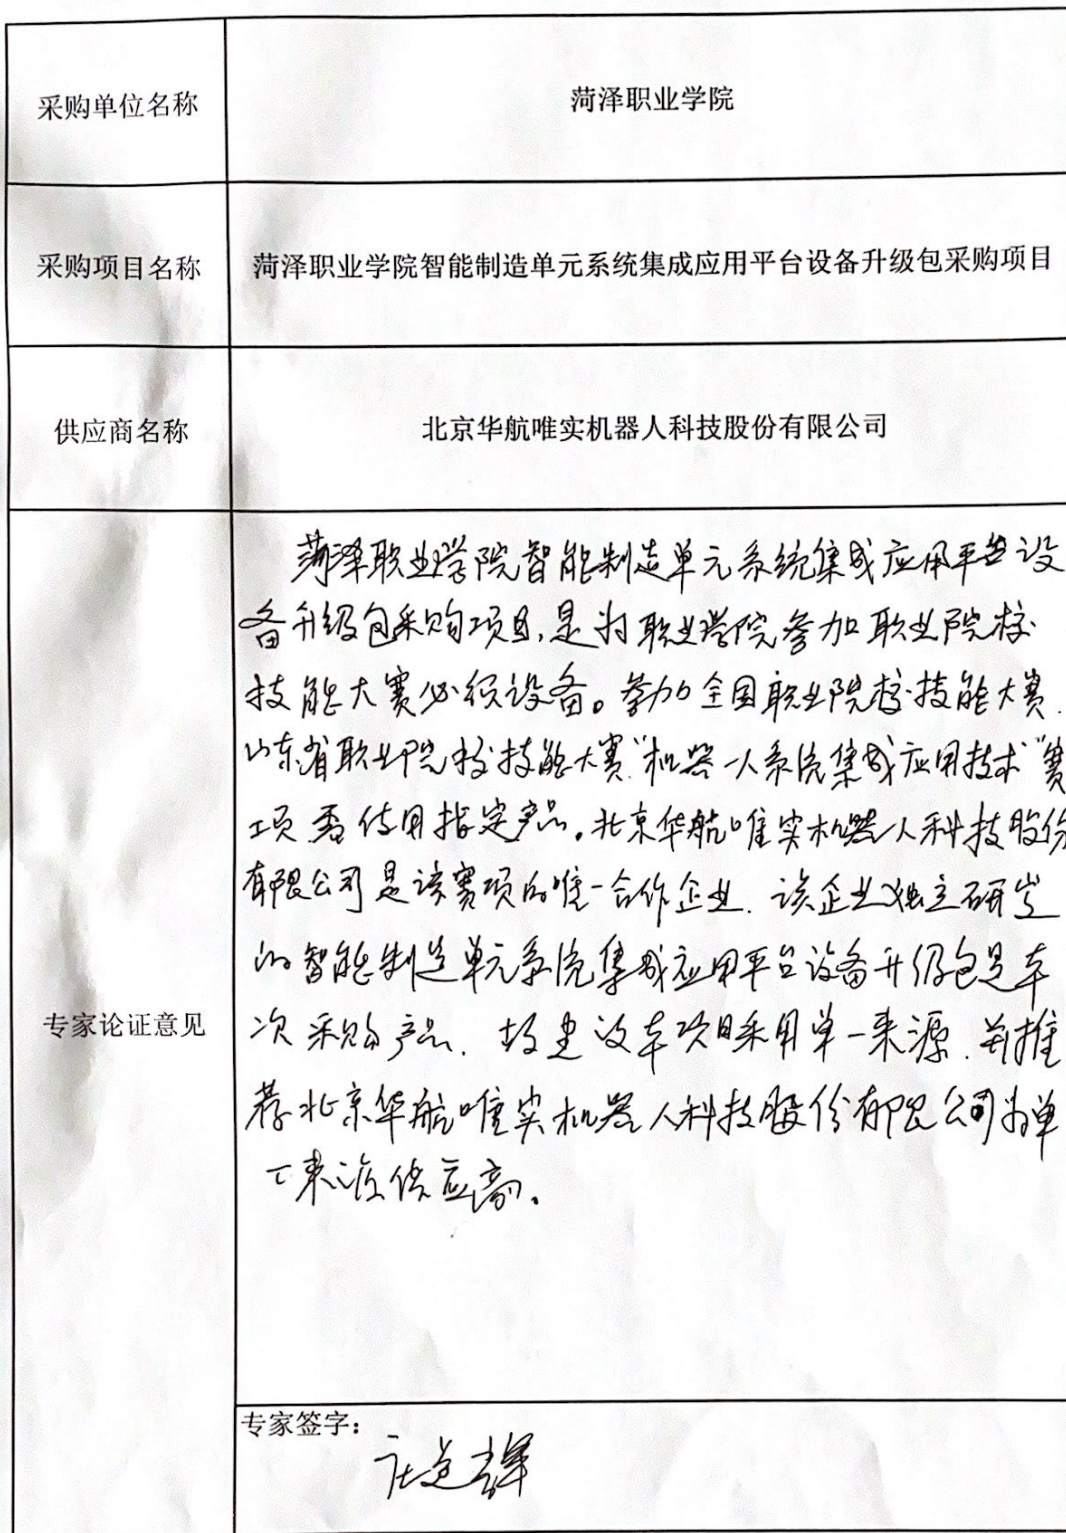 采购单位名称
菏泽职业学院
采购项目名称
菏泽职业学院智能制造单元系统集成应用平台设备升级包采购项目
供应商名称
北京华航唯实机器人科技股份有限公司
专家论证意见
菏泽职业学院智能制造单元系统集成应用平台设
备升级包采购项目,是为职业学院参加职业院校
技能大赛必须设备。参加全国职业院校技能大赛.
山东省职业院校技能大赛"机器人系统集成应用技术"赛
项需使用指定产品。北京华航唯实机器人科技股份
有限公司是该赛项的唯一合作企业.该企业独立研发
的智能制造单元系统集成应用平台设备升级包是本
次采购产品.故建议本项目采用单一来源.并推
荐北京华航唯实机器人科技股份有限公司为单
一来源供应商。
专家签字: